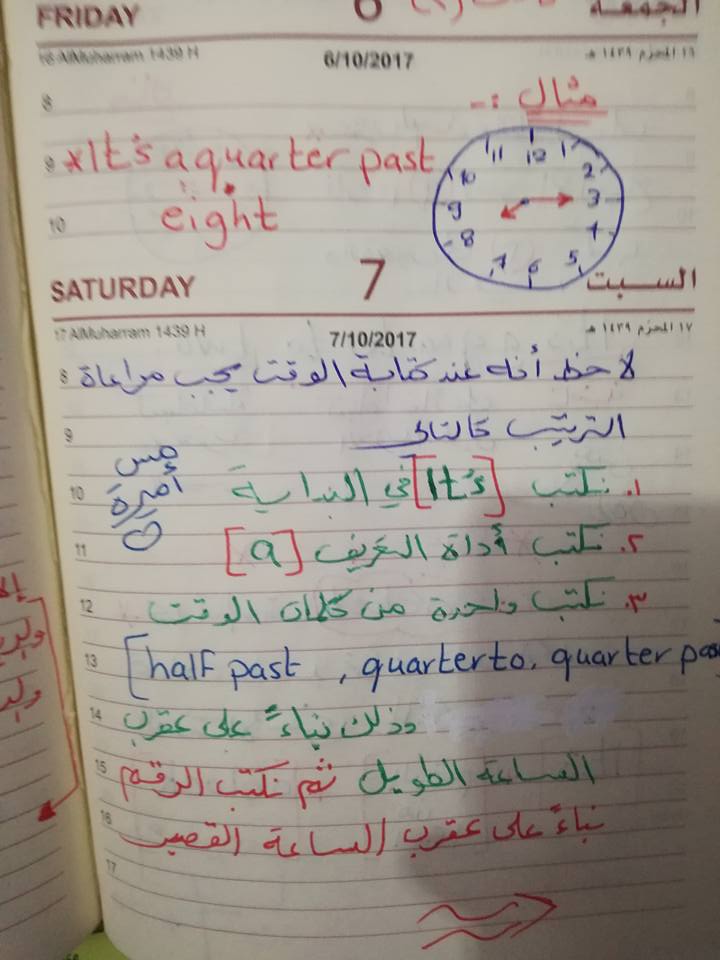 FRIDAY 6 الجمعة
16 AlMuharram 1439 H 6/10/2017 ١٦ المحرم ١٤٣٩ هـ
8 مثال :-
9 *It's a quarter past
10 eight
11 12 1 2 3 4 5 6 7 8 9 10
SATURDAY 7 السبت
17 AlMuharram 1439 H 7/10/2017 ١٧ المحرم ١٤٣٩ هـ
8 لاحظ أنه عند كتابة الوقت يجب مراعاة
9 الترتيب كالتالي
مس
أميرة
10 ١. نكتب [It's] في البداية
11 ٢. نكتب أداة التعريف [a]
12 ٣. نكتب واحدة من كلمات الوقت
13 [half past , quarter to , quarter past
14 وذلك بناءً على عقرب
15 الساعة الطويل ثم نكتب الرقم
16 بناءً على عقرب الساعة القصير
17